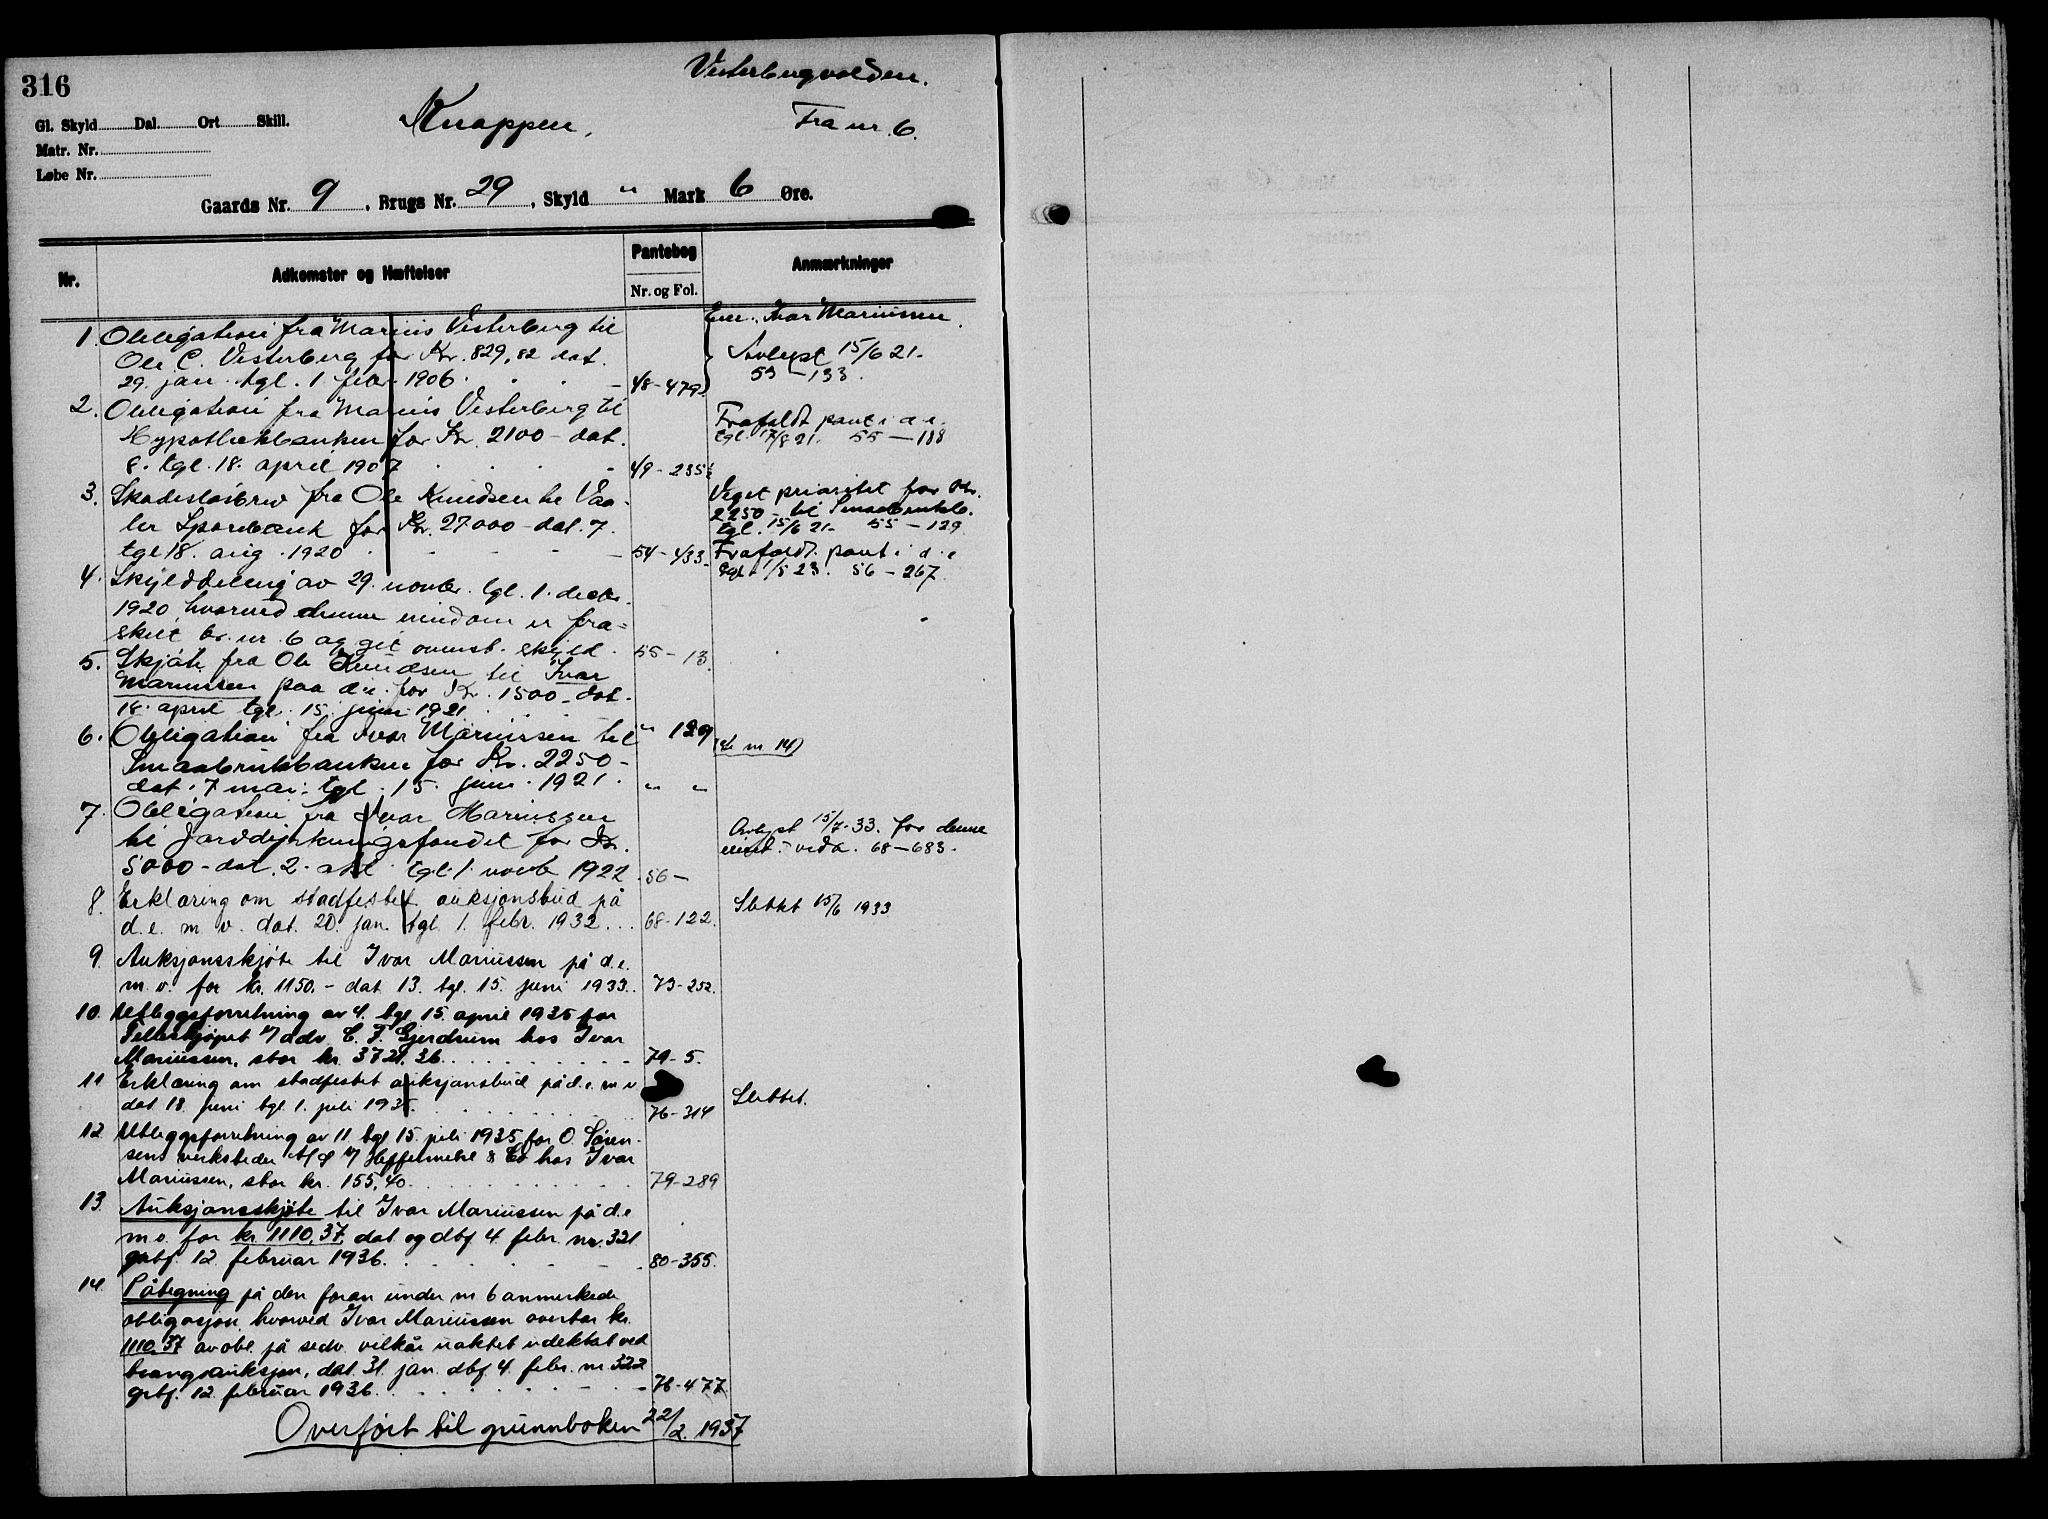 316
Vesterbergvolden.
Gl. Skyld Dal. Ort Skill.
Knappen,
Fra nr. 6.
Matr. Nr.
Løbe Nr.
Gaards Nr. 9, Brugs Nr. 29, Skyld " Mark 6 Øre.
Nr. Adkomster og Hæftelser Pantebog Nr. og Fol. Anmærkninger
Eier: Ivar Mariussen.
1. Obligation fra Marius Vesterberg til
Ole C. Vesterberg for Kr. 829,82 dat.
29. jan. tgl. 1. febr. 1906. 48-479
Avlyst 15/6 21.
53-133.
2. Obligation fra Marius Vesterberg til
Hypothekbanken for Kr. 2100- dat.
8. tgl. 18. april 1907 49-235
Frafaldt pant i d.e.
tgl. 17/8 21. 55-188
3. Skadesløsbrev fra Ole Knudsen til Vaa-
ler Sparebank for Kr. 27000- dat. 7.
tgl 18. aug. 1920 54-433.
Veget prioritet for Kr.
2250- til Smaabrukb.
tgl. 15/6 21. 55-129
Frafaldt pant i d.e
tgl. 1/5 23. 56-267.
4. Skylddeling av 29. novbr. tgl. 1. decbr.
1920, hvorved denne eiendom er fra-
skilt br. nr. 6 og git ovenst. skyld. 55-13.
5. Skjøte fra Ole Knudsen til Ivar
Mariussen paa d.e. for Kr. 1500- dat.
18. april tgl. 15. juni 1921 " 129
6. Obligation fra Ivar Mariussen til
Smaabrukbanken for Kr. 2250-
dat. 7 mai. tgl. 15. juni. 1921. " "
(se nr 14)
7. Obligation fra Ivar Mariussen
til Jorddyrkningsfondet for Kr.
5000- dat. 2. okt. tgl. 1. novb 1922. 56-
Avlyst 15/7-33. for denne
eiend. vedk. 68-683.
8. Erklæring om stadfestet auksjonsbud på
d.e. m. v. dat. 20. jan. tgl. 1. febr. 1932... 68-122.
Slettet 15/6 1933
9. Auksjonsskjøte til Ivar Mariussen på d.e.
m.v. for kr. 1150.- dat. 13. tgl. 15. juni 1933.. 73-252.
10. Utleggsforretning av 4. tgl. 15. april 1935 for
Felleskjøpet v/ adv. C. F. Gjerdrum hos Ivar
Mariussen, stor kr. 3721.36. 79-5.
11 Erklæring om stadfestet auksjonsbud på d.e. m v
dat 18. juni tgl. 1. juli 1935. 76-314
Slettet.
12 Utleggsforretning av 11. tgl 15. juli 1935 for O. Søren-
sens verksteder A/S v/ Heffermehl & Co hos Ivar
Mariussen, stor kr. 155,40. 79-289
13. Auksjonsskjøte til Ivar Mariussen på d.e
m.v. for kr. 1110.37. dat. og dbf. 4. febr. nr. 321
grbf. 12. februar 1936. 80-355.
14. Påtegning på den foran under nr 6 anmerkede
obligasjon, hvorved Ivar Mariussen overtar kr.
1110.37 av obl. på sedv. vilkår uaktet udekket ved
tvangsauksjon, dat. 31. jan. dbf. 4. febr. nr. 322
grbf. 12. februar 1936. 76-477.
Overført til grunnboken 22/2. 1937